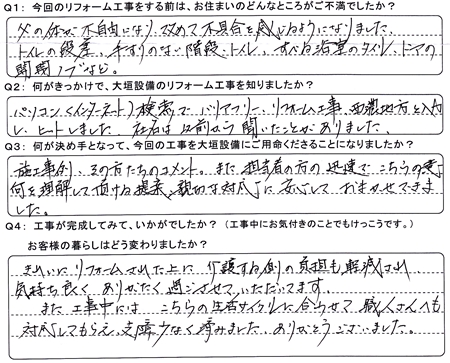 Q1: 今回のリフォーム工事をする前は、お住まいのどんなところがご不満でしたか？
父の体が不自由になり、改めて不具合を感じるようになりました。
トイレの段差、手すりのない階段、トイレ、すべる浴室のタイル、ドアの
開閉ノブなど。
Q2: 何がきっかけで、大垣設備のリフォーム工事を知りましたか？
パソコン（インターネット）検索で バリアフリー、リフォーム工事、西濃地方と入力
し、ヒットしました。社名は以前から聞いたことがありました。
Q3: 何が決め手となって、今回の工事を大垣設備にご用命くださることになりましたか？
施工事例、その方たちのコメント。また担当者の方の迅速で こちらの意
向を理解して頂ける提案、親切な対応に安心して おまかせできま
した。
Q4: 工事が完成してみて、いかがでしたか？（工事中にお気付きのことでもけっこうです。）
お客様の暮らしはどう変わりましたか？
きれいにリフォームされた上に 介護する側の負担も軽減され
気持ち良く ありがたく過ごさせていただいてます。
また 工事中には こちらの生活サイクルに合わせて 職人さんも
対応してもらえ、支障少なく済みました。ありがとうございました。